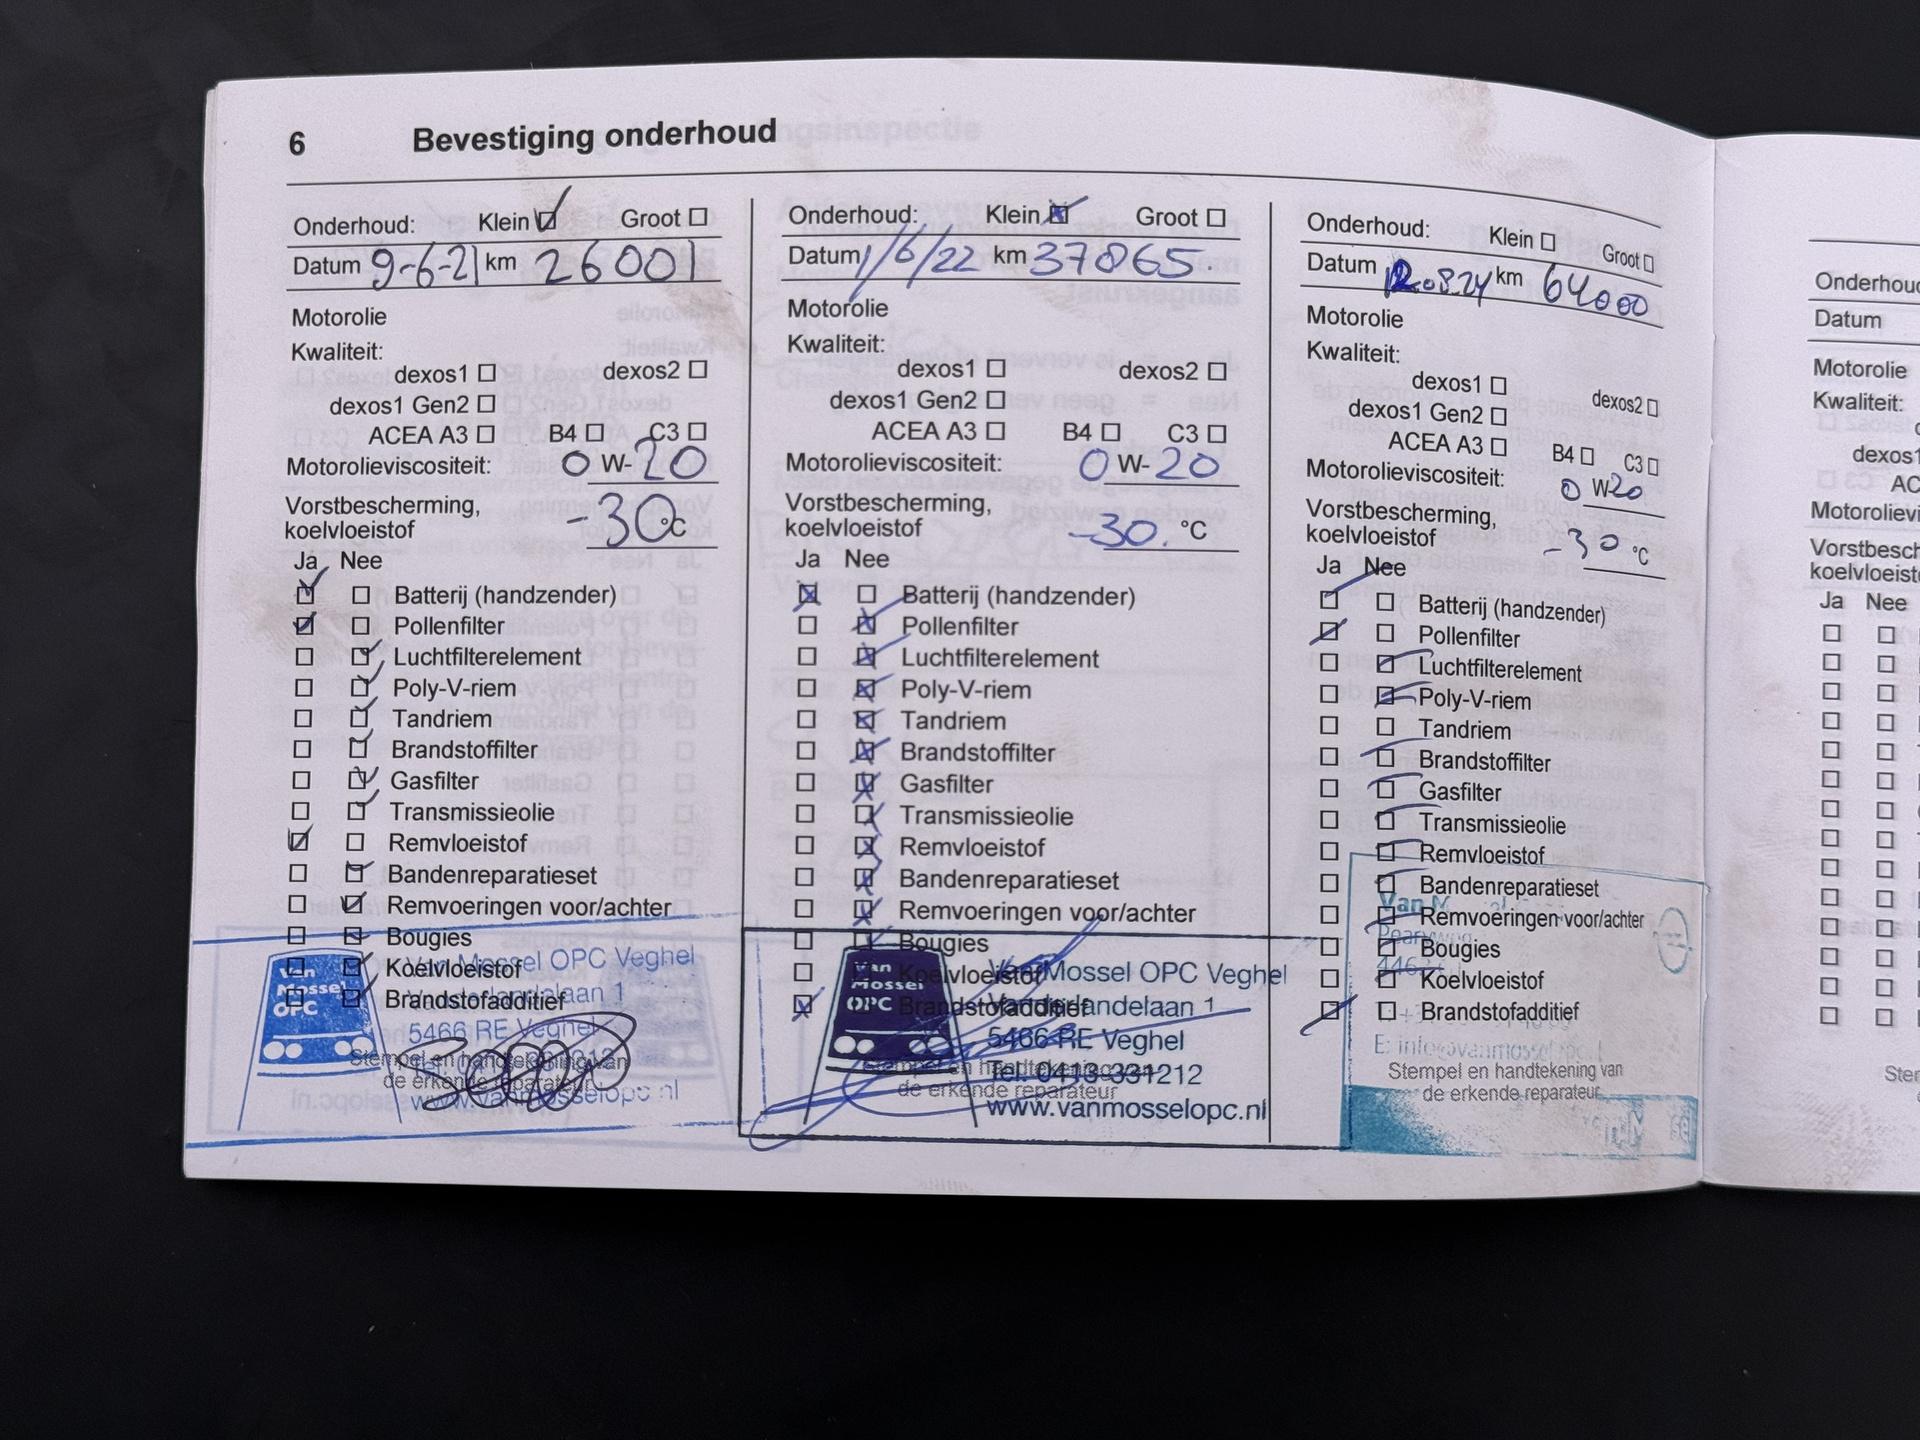 6 Bevestiging onderhoud
Onderhoud: Klein Groot
Datum 9-6-21 km 26001
Motorolie
Kwaliteit:
dexos1 dexos2
dexos1 Gen2
ACEA A3 B4 C3
Motorolieviscositeit: 0 W-20
Vorstbescherming,
koelvloeistof -30 °C
Ja Nee
Batterij (handzender)
Pollenfilter
Luchtfilterelement
Poly-V-riem
Tandriem
Brandstoffilter
Gasfilter
Transmissieolie
Remvloeistof
Bandenreparatieset
Remvoeringen voor/achter
Bougies
Koelvloeistof
Brandstofadditief
Van
Mossel
OPC
Van Mossel OPC Veghel
5466 RE Veghel
Stempel en handtekening van
de erkende reparateur
www.vanmosselopc.nl
Onderhoud: Klein Groot
Datum 1/6/22 km 37865.
Motorolie
Kwaliteit:
dexos1 dexos2
dexos1 Gen2
ACEA A3 B4 C3
Motorolieviscositeit: 0 W-20
Vorstbescherming,
koelvloeistof -30. °C
Ja Nee
Batterij (handzender)
Pollenfilter
Luchtfilterelement
Poly-V-riem
Tandriem
Brandstoffilter
Gasfilter
Transmissieolie
Remvloeistof
Bandenreparatieset
Remvoeringen voor/achter
Bougies
Koelvloeistof
Brandstofadditief
Van
Mossel
OPC
Van Mossel OPC Veghel
5466 RE Veghel
Tel. 0413-331212
Stempel en handtekening van
de erkende reparateur
www.vanmosselopc.nl
Onderhoud: Klein Groot
Datum 12.08.24 km 64000
Motorolie
Kwaliteit:
dexos1 dexos2
dexos1 Gen2
ACEA A3 B4 C3
Motorolieviscositeit: 0 W-20
Vorstbescherming,
koelvloeistof -30 °C
Ja Nee
Batterij (handzender)
Pollenfilter
Luchtfilterelement
Poly-V-riem
Tandriem
Brandstoffilter
Gasfilter
Transmissieolie
Remvloeistof
Bandenreparatieset
Remvoeringen voor/achter
Bougies
Koelvloeistof
Brandstofadditief
Van
Stempel en handtekening van
de erkende reparateur
Datum
Motorolie
Kwaliteit:
Ja Nee